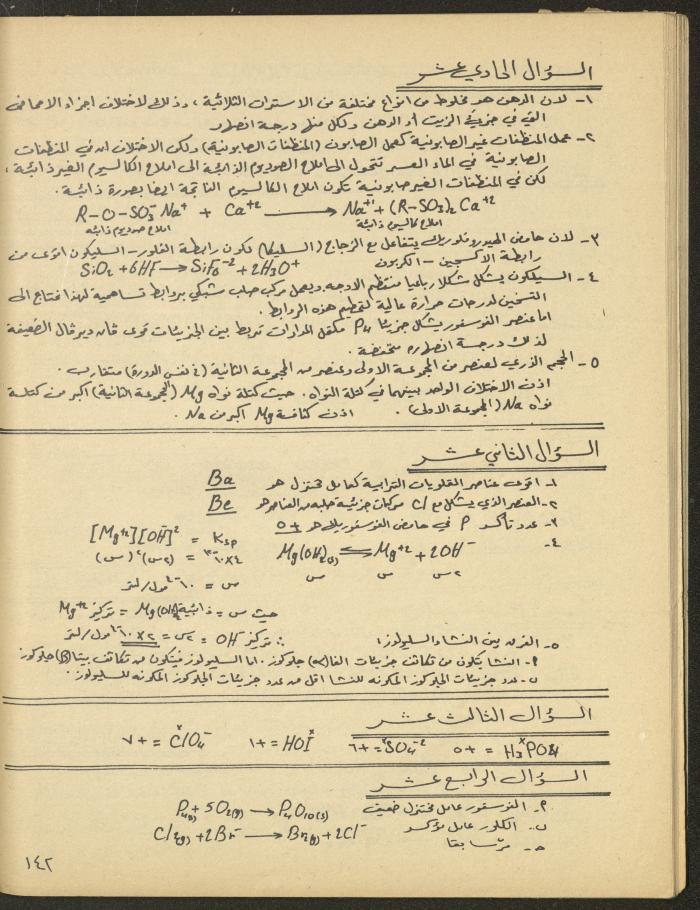 السؤال الحادي عشر
١- لان الدهن هو مخلوط من انواع مختلفة من الاسترات الثلاثية ، وذلك لاختلاف اجزاء الاحماض
التي في جزيئي الزيت أو الدهن ولكل منها درجة انصهار
٢- عمل المنظفات غير الصابونية كعمل الصابون (المنظفات الصابونية) ولكن الاختلاف انه في المنظفات
الصابونية في الماء العسر تتحول الى املاح الصوديوم الذائبة الى املاح الكالسيوم الغير ذائبة ،
لكن في المنظفات الغير صابونية تكون املاح الكالسيوم الناتجة ايضا بصورة ذائبة .
R-O-SO₃⁻ Na⁺ + Ca⁺² ⟶ Na⁺¹ + (R-SO₃)₂ Ca⁺²
املاح صوديوم ذائبة املاح كالسيوم ذائبة
٣- لان حامض الهيدروفلوريك يتفاعل مع الزجاج (السليكا) لكون رابطة الفلور - السليكون اقوى من
رابطة الاكسجين - الكربون SiO₂ + 6HF ⟶ SiF₆⁻² + 2H₃O⁺
٤- السيلكون يشكل شكلا رباعيا منتظم الاوجه ويعمل مركب صلب شبكي بروابط تساهمية لهذا فنحتاج الى
التسخين لدرجات حرارة عالية لتحطيم هذه الروابط .
اما عنصر الفوسفور يشكل جزيئا P₄ مكتمل المدارات تربط بين الجزيئات قوى فان ديرفال الضعيفة
لذلك درجة انصهاره منخفضة .
٥- الحجم الذري لعنصر من المجموعة الاولى وعنصر من المجموعة الثانية (في نفس الدورة) متقارب .
اذن الاختلاف الوحيد بينهما في كتلة النواه . حيث كتلة نواه Mg (المجموعة الثانية) اكبر من كتلة
نواه Na (المجموعة الاولى) . اذن كثافة Mg اكبر من Na .
السؤال الثاني عشر
١- اقوى عناصر القلويات الترابية كعامل مختزل هو Ba
٢- العنصر الذي يشكل مع Cl مركبات جزيئية صلبه من العناصر هو Be
٣- عدد تأكسد P في حامض الفوسفوريك هو +٥
٤- Mg(OH)₂(s) ⇌ Mg⁺² + 2OH⁻ [Mg⁺²][OH⁻]² = Ksp
س س ٢س (س) (٢س)² = ٤×١٠⁻¹²
س = ١٠⁻⁴ مول/لتر
حيث س = ذائبية Mg(OH)₂ = تركيز Mg⁺²
∴ تركيز OH⁻ = ٢س = ٢×١٠⁻⁴ مول/لتر
٥- الفرق بين النشا والسليولوز :
٩- النشا يتكون من تكاثف جزيئات الفا (∝) جلوكوز . اما السليولوز فيتكون من تكاثف بيتا (B) جلوكوز
ب- عدد جزيئات الجلوكوز المكونه للنشا اقل من عدد جزيئات الجلوكوز المكونه للسليولوز .
السؤال الثالث عشر
H₃PO₄ = +٥ SO₄⁻² = +٦ HOI = +١ ClO₄⁻ = +٧
السؤال الرابع عشر
٩- الفوسفور عامل مختزل ضعيف P₄(s) + 5O₂(g) ⟶ P₄O₁₀(s)
ب- الكلور عامل مؤكسد Cl₂(g) + 2Br⁻ ⟶ Br₂(g) + 2Cl⁻
ج- مرّ سابقا
١٤٢